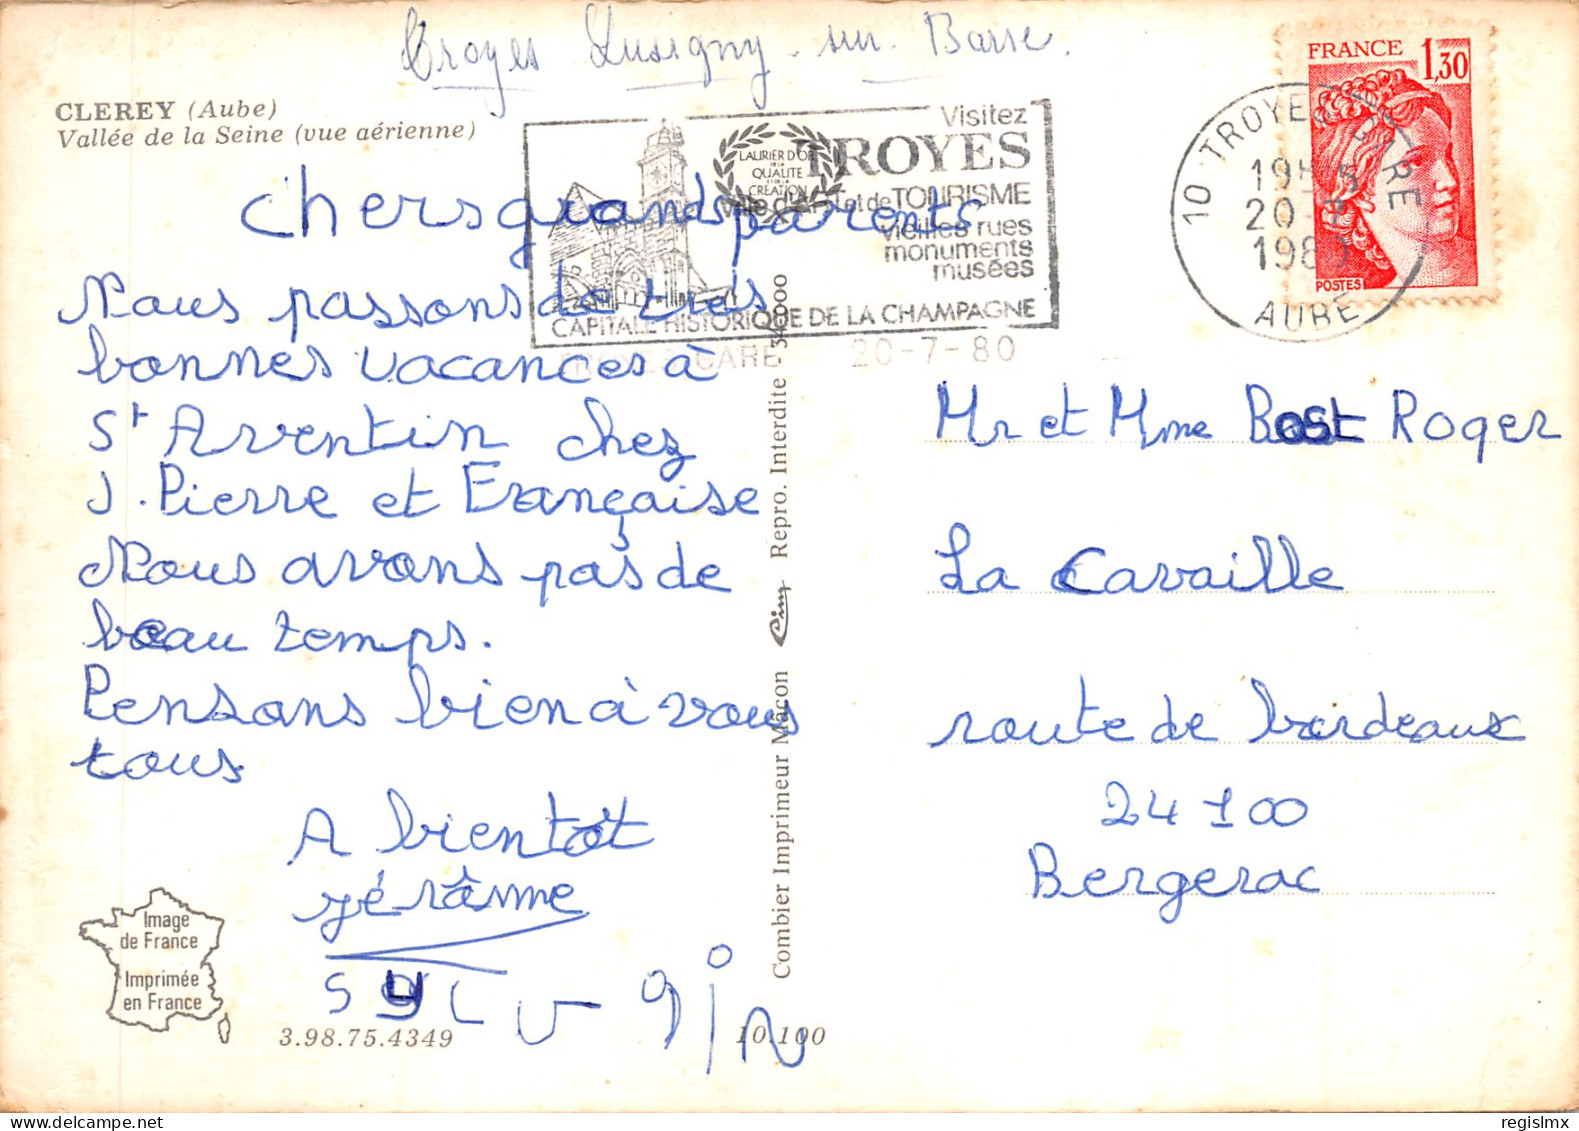 Troyes Lusigny-sur-Barse.
CLEREY (Aube)
Vallée de la Seine (vue aérienne)
Visitez
TROYES
LAURIER D'OR
DE LA
QUALITE
ET DE LA
CRÉATION
Ville d'Art et de TOURISME
vieilles rues
monuments
musées
CAPITALE HISTORIQUE DE LA CHAMPAGNE
TROYES GARE 20-7-80
FRANCE 1,30
POSTES
10 TROYES GARE
20-7
1980
AUBE
chers grands parents
Nous passons de très
bonnes vacances à
St Aventin chez
J. Pierre et Française
Nous avons pas de
beau temps.
Pensons bien à vous
tous
A bientôt
jérâme
sylvain
Mr et Mme Bost Roger
La Cavaille
route de bordeaux
24 100
Bergerac
Combier Imprimeur Mâcon Cim Repro. Interdite - 346000
Image
de France
Imprimée
en France
3.98.75.4349
10.100
regislmx